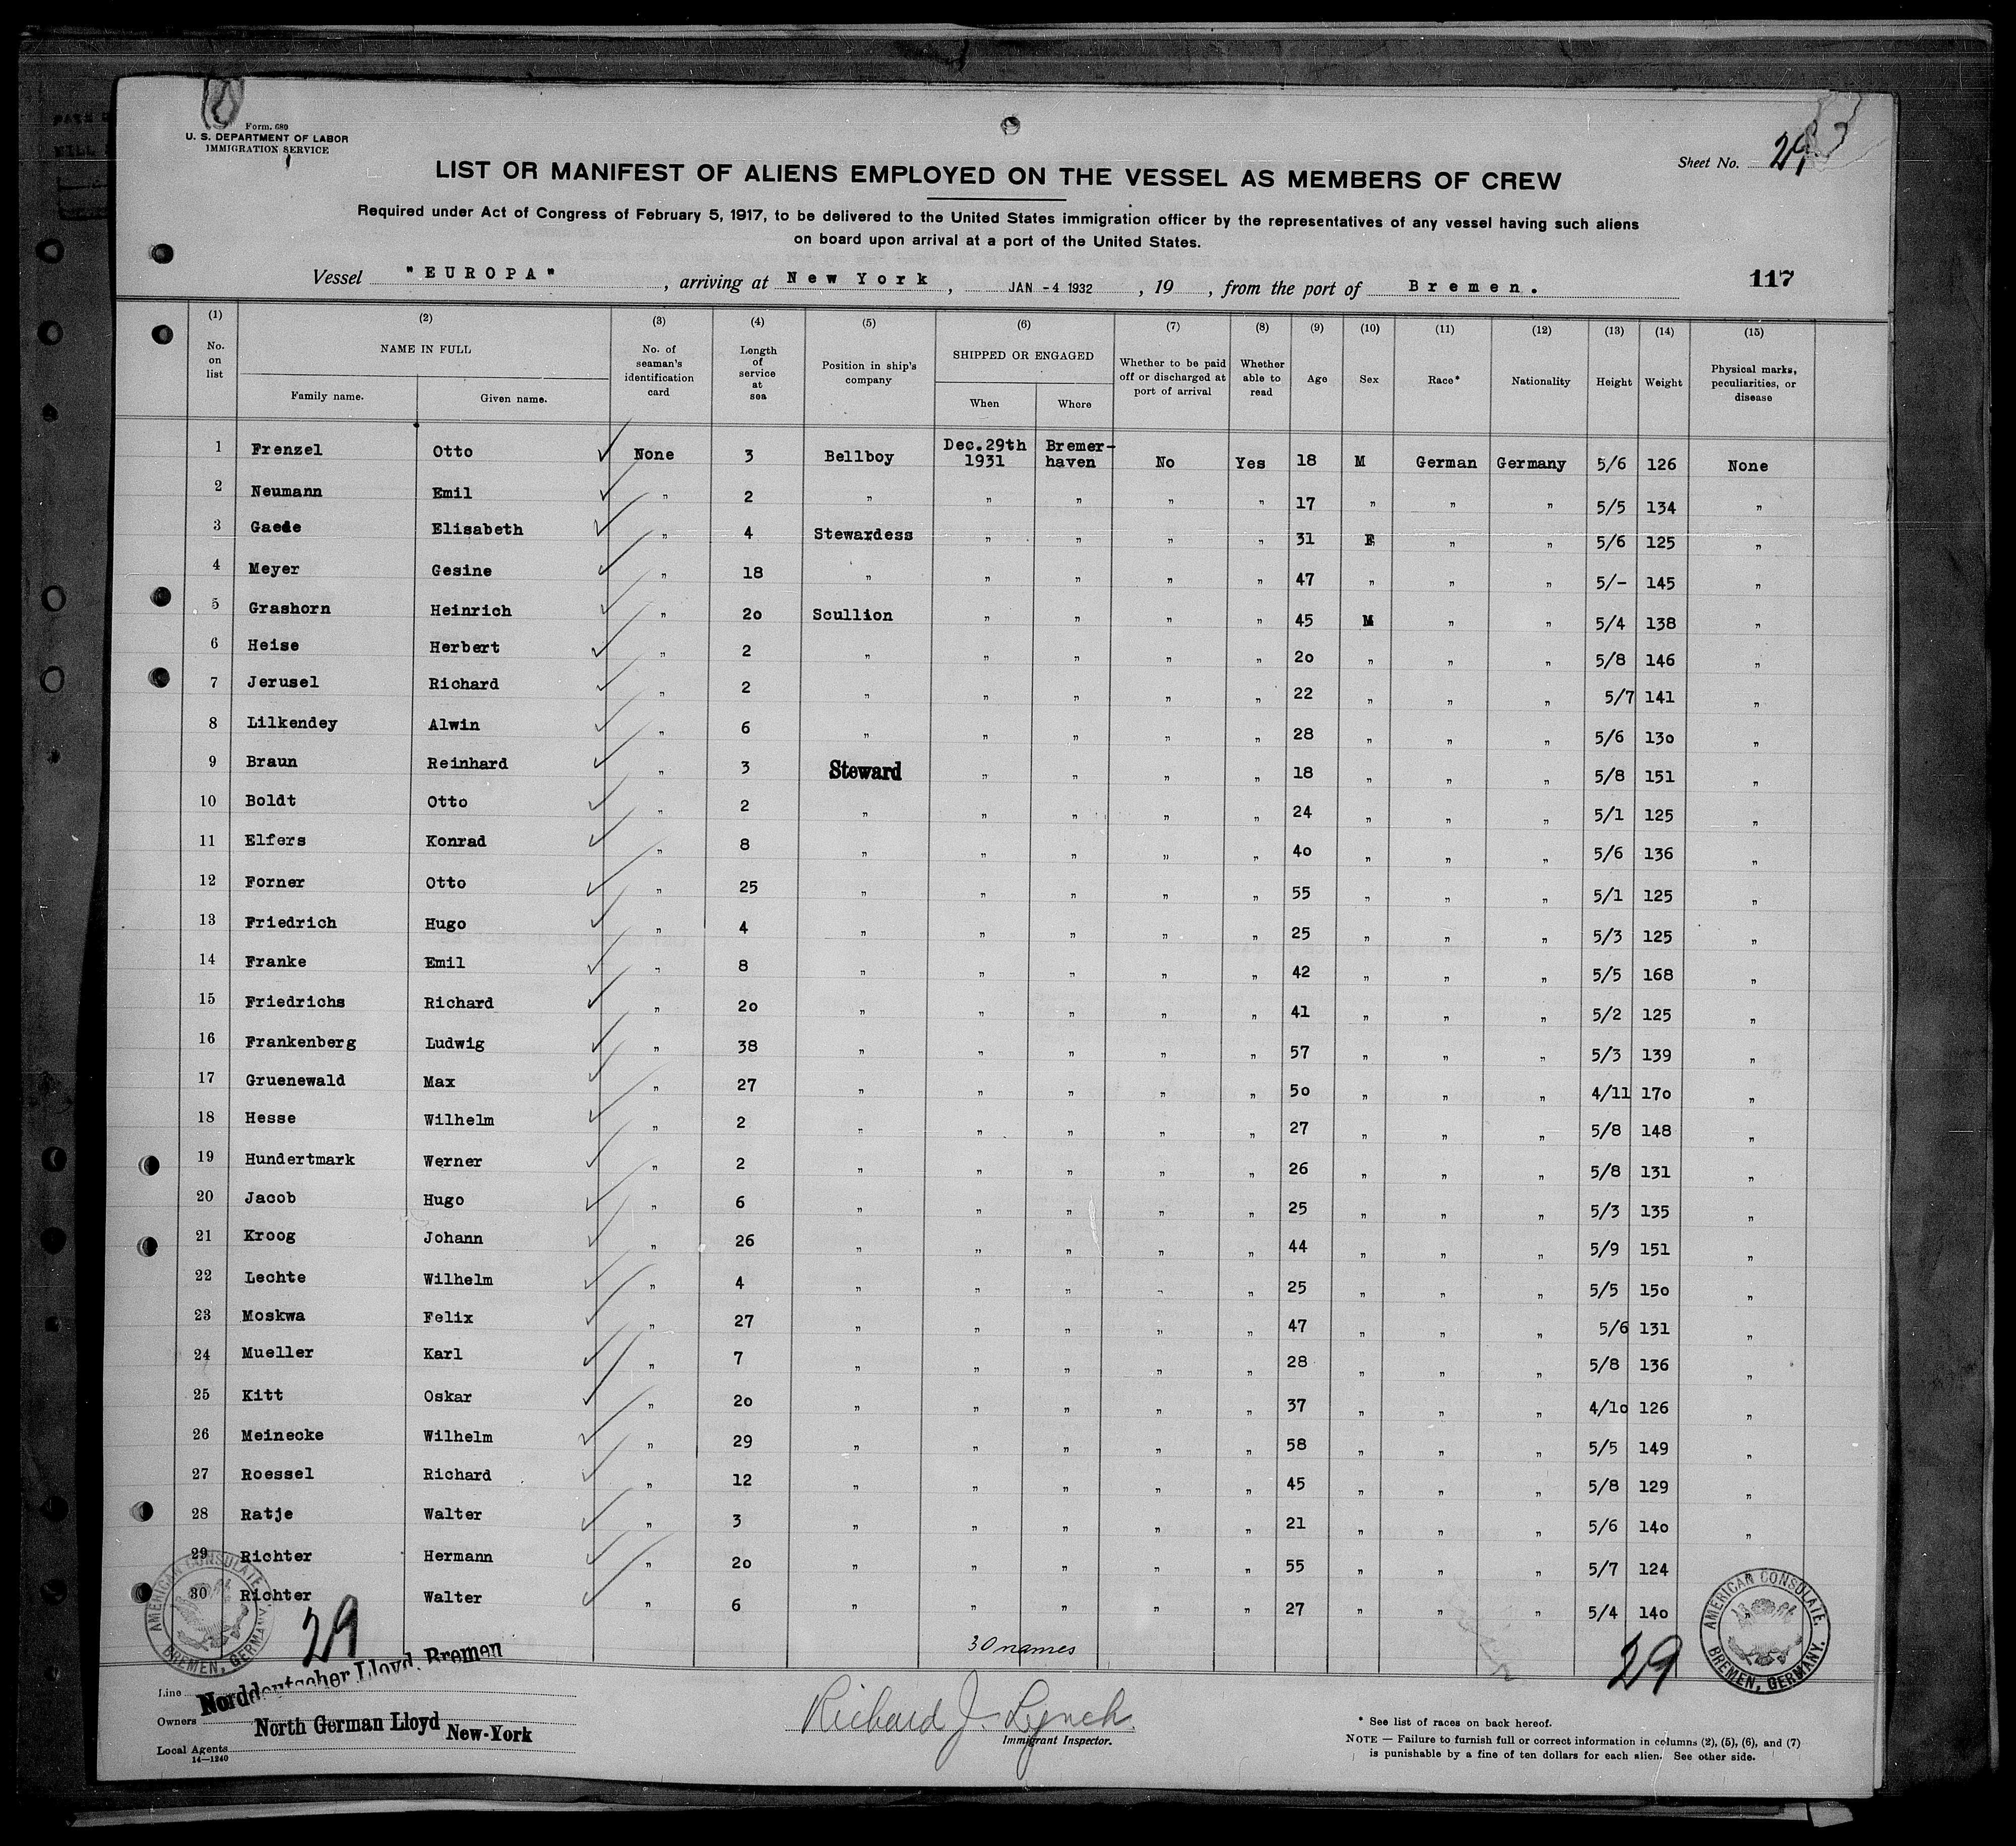 Form. 680
U. S. DEPARTMENT OF LABOR
IMMIGRATION SERVICE
Sheet No. 29
LIST OR MANIFEST OF ALIENS EMPLOYED ON THE VESSEL AS MEMBERS OF CREW
Required under Act of Congress of February 5, 1917, to be delivered to the United States immigration officer by the representatives of any vessel having such aliens
on board upon arrival at a port of the United States.
Vessel "EUROPA", arriving at New York, JAN -4 1932, 19 , from the port of Bremen.
117
(1) (2) (3) (4) (5) (6) (7) (8) (9) (10) (11) (12) (13) (14) (15)
No. on list NAME IN FULL Family name. Given name. No. of seaman's identification card Length of service at sea Position in ship's company SHIPPED OR ENGAGED When Where Whether to be paid off or discharged at port of arrival Whether able to read Age Sex Race* Nationality Height Weight Physical marks, peculiarities, or disease
1 Frenzel Otto ✓ None 3 Bellboy Dec.29th 1931 Bremer-haven No Yes 18 M German Germany 5/6 126 None
2 Neumann Emil ✓ " 2 " " " " " 17 " " " 5/5 134 "
3 Gaede Elisabeth ✓ " 4 Stewardess " " " " 31 F " " 5/6 125 "
4 Meyer Gesine ✓ " 18 " " " " " 47 " " " 5/- 145 "
5 Grashorn Heinrich ✓ " 20 Scullion " " " " 45 M " " 5/4 138 "
6 Heise Herbert ✓ " 2 " " " " " 20 " " " 5/8 146 "
7 Jerusel Richard ✓ " 2 " " " " " 22 " " " 5/7 141 "
8 Lilkendey Alwin ✓ " 6 " " " " " 28 " " " 5/6 130 "
9 Braun Reinhard ✓ " 3 Steward " " " " 18 " " " 5/8 151 "
10 Boldt Otto ✓ " 2 " " " " " 24 " " " 5/1 125 "
11 Elfers Konrad ✓ " 8 " " " " " 40 " " " 5/6 136 "
12 Forner Otto ✓ " 25 " " " " " 55 " " " 5/1 125 "
13 Friedrich Hugo ✓ " 4 " " " " " 25 " " " 5/3 125 "
14 Franke Emil ✓ " 8 " " " " " 42 " " " 5/5 168 "
15 Friedrichs Richard ✓ " 20 " " " " " 41 " " " 5/2 125 "
16 Frankenberg Ludwig ✓ " 38 " " " " " 57 " " " 5/3 139 "
17 Gruenewald Max ✓ " 27 " " " " " 50 " " " 4/11 170 "
18 Hesse Wilhelm ✓ " 2 " " " " " 27 " " " 5/8 148 "
19 Hundertmark Werner ✓ " 2 " " " " " 26 " " " 5/8 131 "
20 Jacob Hugo ✓ " 6 " " " " " 25 " " " 5/3 135 "
21 Kroog Johann ✓ " 26 " " " " " 44 " " " 5/9 151 "
22 Lechte Wilhelm ✓ " 4 " " " " " 25 " " " 5/5 150 "
23 Moskwa Felix ✓ " 27 " " " " " 47 " " " 5/6 131 "
24 Mueller Karl ✓ " 7 " " " " " 28 " " " 5/8 136 "
25 Kitt Oskar ✓ " 20 " " " " " 37 " " " 4/10 126 "
26 Meinecke Wilhelm ✓ " 29 " " " " " 58 " " " 5/5 149 "
27 Roessel Richard ✓ " 12 " " " " " 45 " " " 5/8 129 "
28 Ratje Walter ✓ " 3 " " " " " 21 " " " 5/6 140 "
29 Richter Hermann ✓ " 20 " " " " " 55 " " " 5/7 124
30 Richter Walter ✓ " 6 " " " " " 27 " " " 5/4 140
AMERICAN CONSULATE, BREMEN, GERMANY.
AMERICAN CONSULATE, BREMEN, GERMANY.
29
30 names
29
Line Norddeutscher Lloyd, Bremen
Owners North German Lloyd New-York
Local Agents
14—1240
Richard J. Lynch
Immigrant Inspector.
* See list of races on back hereof.
NOTE — Failure to furnish full or correct information in columns (2), (5), (6), and (7)
is punishable by a fine of ten dollars for each alien. See other side.